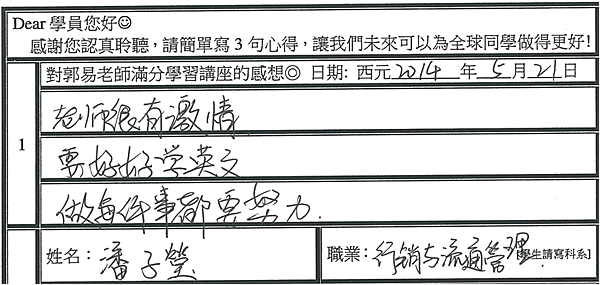 Dear 學員您好☺
感謝您認真聆聽，請簡單寫 3 句心得，讓我們未來可以為全球同學做得更好!
1
對郭易老師滿分學習講座的感想◎ 日期: 西元2014 年 5月21日
老师很有激情
要好好学英文
做每件事都要努力.
姓名：潘子瑩
職業：行銷与流通管理 生請寫科系]